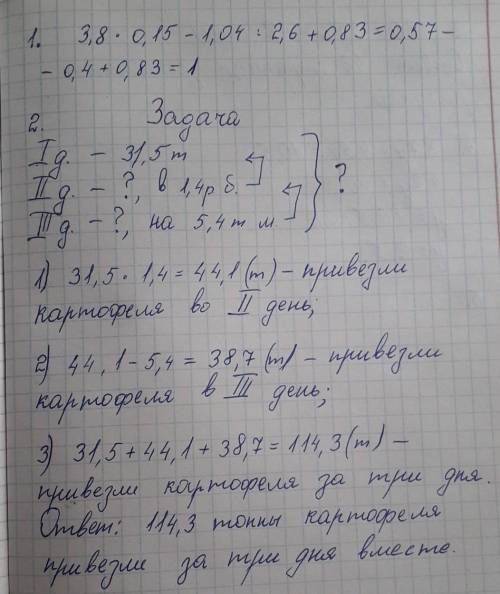 1. 3,8 · 0,15 - 1,04 : 2,6 + 0,83 = 0,57 -
- 0,4 + 0,83 = 1
2. Задача
I д. - 31,5 т
II д. - ?, в 1,4 р б. } ?
III д. - ?, на 5,4 т м
1) 31,5 · 1,4 = 44,1 (т) - привезли
картофеля во II день;
2) 44,1 - 5,4 = 38,7 (т) - привезли
картофеля в III день;
3) 31,5 + 44,1 + 38,7 = 114,3 (т) -
привезли картофеля за три дня.
Ответ: 114,3 тонны картофеля
привезли за три дня вместе.